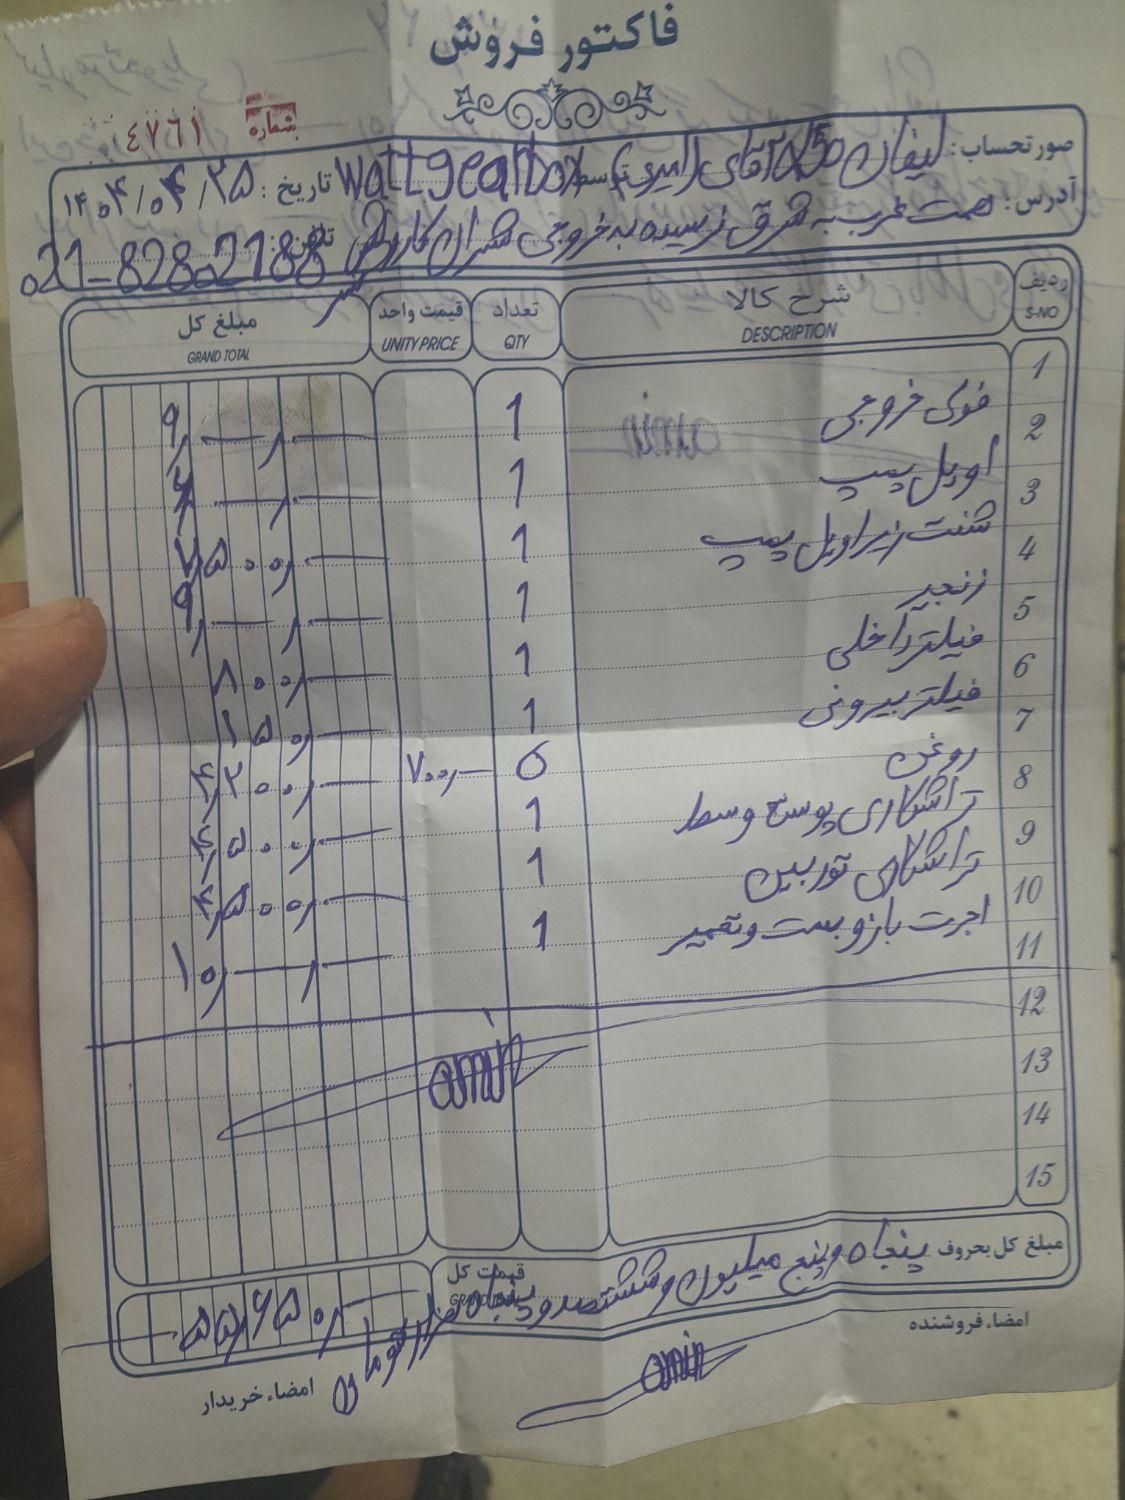 فاکتور فروش
شماره ٤٧٦١
صورتحساب: لیفان 820 آقای امیری توسط Wattgearbox تاریخ: ۱۴۰۴/۰۴/۲۵
آدرس: همت غرب به شرق نرسیده به خروجی شهران تلفن: 021-82802188
ردیف S-NO شرح کالا DESCRIPTION تعداد QTY قیمت واحد UNITY PRICE مبلغ کل GRAND TOTAL
1 فوک خروجی 1 ۹٫—٫—
2 اویل پمپ 1
3 شفت زیر اویل پمپ 1 ۷٫۵۰۰٫—
4 زنجیر 1 ۹٫—٫—
5 فیلتر داخلی 1 ۸۰۰٫—
6 فیلتر بیرونی 1 ۱۵۰٫—
7 روغن ۷۰۰٫— ۴٫۲۰۰٫—
8 تراشکاری پوسته وسط 1 ۵۰۰٫—
9 تراشکاری توربین 1 ۴٫۵۰۰٫—
10 اجرت باز و بست و تعمیر 1 ۱۰٫—٫—
11
12
amin
13
14
15
مبلغ کل بحروف پنجاه و پنج میلیون و ششصد و پنجاه هزار تومان
قیمت کل GRAND TOTAL ۵۵٫۶۵۰٫—
امضاء فروشنده
amin
امضاء خریدار